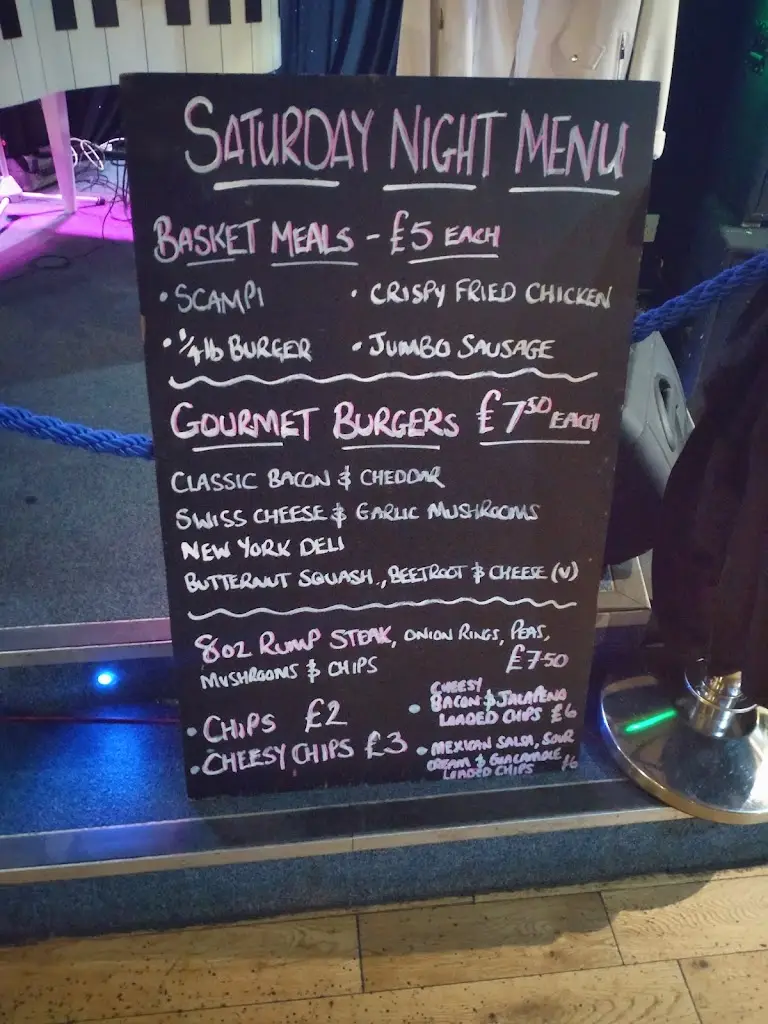 SATURDAY NIGHT MENU
BASKET MEALS - £5 EACH
• SCAMPI • CRISPY FRIED CHICKEN
• 1/4 lb BURGER • JUMBO SAUSAGE
GOURMET BURGERS £7.50 EACH
CLASSIC BACON & CHEDDAR
SWISS CHEESE & GARLIC MUSHROOMS
NEW YORK DELI
BUTTERNUT SQUASH, BEETROOT & CHEESE (V)
8oz RUMP STEAK, ONION RINGS, PEAS,
MUSHROOMS & CHIPS £7.50
• CHIPS £2
• CHEESY CHIPS £3
• CHEESY
BACON & JALAPENO
LOADED CHIPS £6
• MEXICAN SALSA, SOUR
CREAM & GUACAMOLE
LOADED CHIPS £6